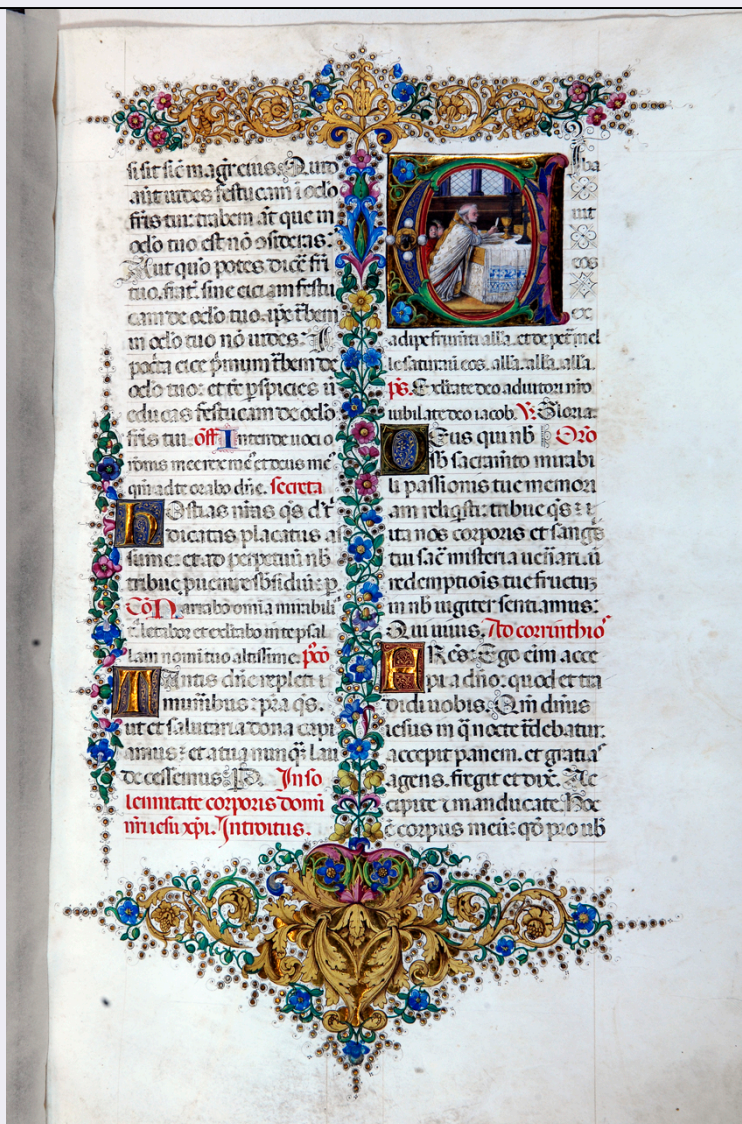 si sit sic̄ magr̄ eius. Quid
aūt uides festucam ī oclo
fr̄is tui: trabem aūt que in
oclo tuo est nō ꝯsideras:
Aut quō potes dicē fr̄i
tuo. frāt. sine eiciam festu
cam de oclo tuo. ipē tbem
in oclo tuo nō uides:
eice p̄mum tbem de
oclo tuo: et tc̄ pspicies ū
educas festucam de oclo
fr̄is tui. off̄ Intende uoci o
rōnis mee rex me' et deus me'
qm̄ ad te orabo dn̄e. secreta
Hostias nr̄as q̄s d̄
dicatas placatus as
sume: et ad perpetuū nb̄
tribue puenire sbsidiū: p
Cō Narrabo omīa mirabili
letabor et exltabo in te psal
lam nomī tuo altissime. p̄cō
Mantis dn̄e repleti
muībus: pra q̄s.
ut et salutaria dona capi
amus: et a tua nunq̄ lau
de cessemus: P. In so
lemnitate corporis domī
nr̄i iesu xp̄i. Introitus.
Ciba
uit
eos
ex
adipe frumti alla. et de petra mel
le saturauit eos. alla. alla. alla.
ps. Exltate deo adiutori nr̄o
iubilate deo iacob. V. Gloria.
Deus qui nb̄ Orō
sb sacramto mirabi
li passionis tue memori
am reliqsti: tribue q̄s
ita nos corporis et sangs
tui sac̄ misteria uenari. ū
redemptiois tue fructū
in nb̄ iugiter sentiamus:
Qui uiuis. Ad corinthio
FRēs: Ego eīm acce
pi a dn̄o: quod et tra
didi uobis. Qm̄ dn̄us
iesus in q̄ nocte tdebatur.
accepit panem. et gratia
agens. fregit et dix̄. Ac
cipite ī manducate. Hoc
ē corpus meū: qd̄ pro ub̄